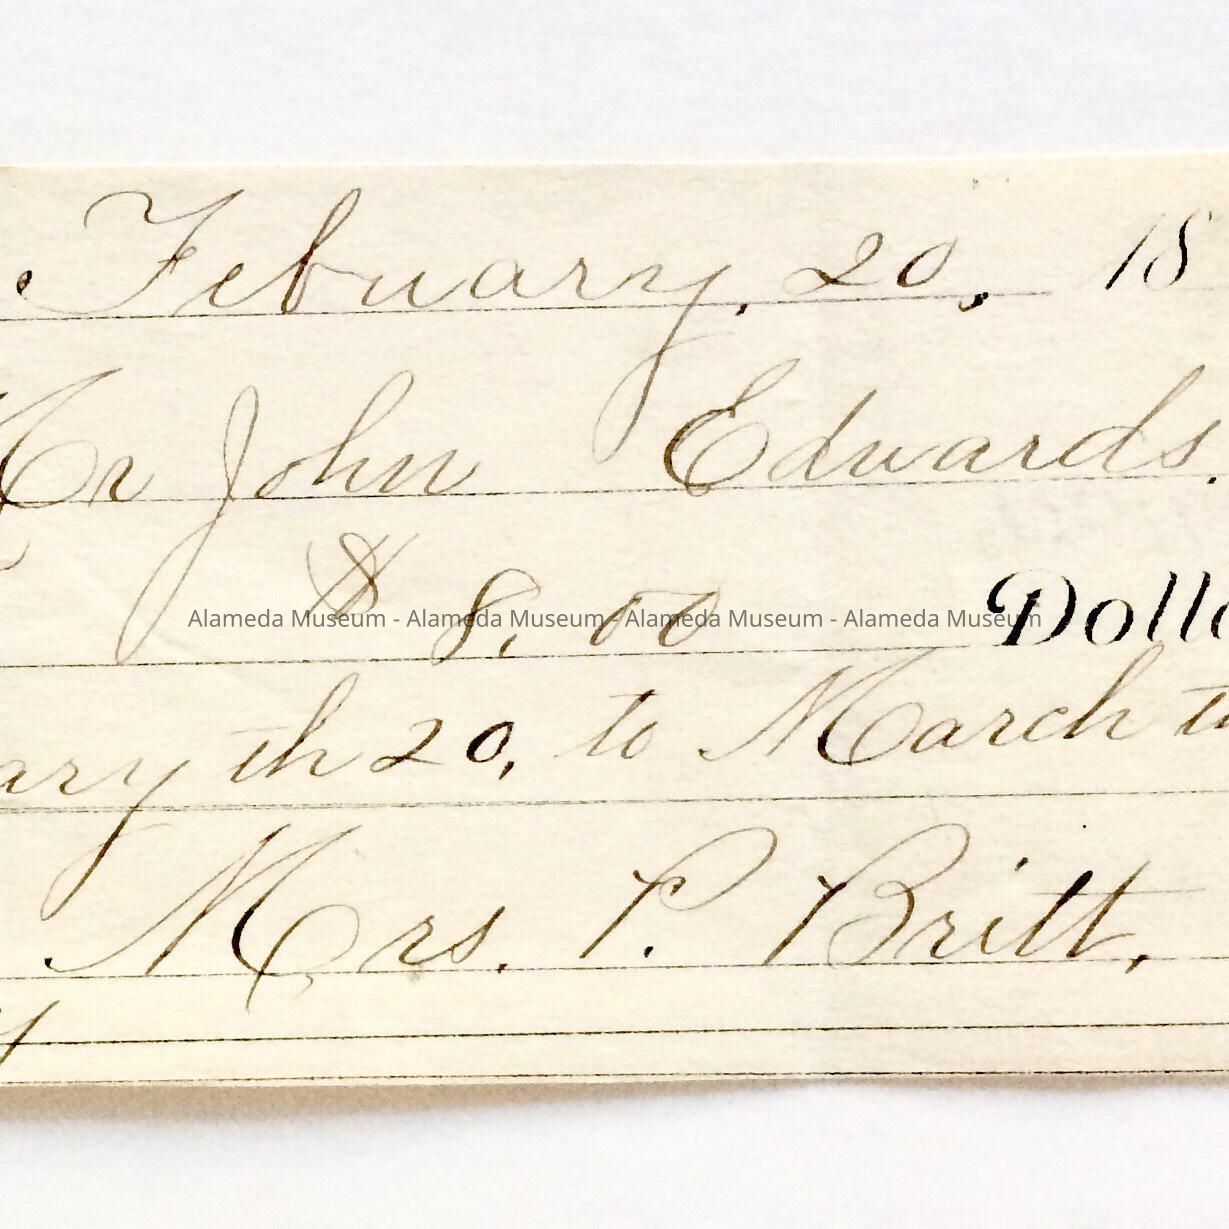 Febuary. 20, 18
Mr John Edwards.
$ 8.00 Dolla
Alameda Museum - Alameda Museum - Alameda Museum - Alameda Museum
ary th 20, to March th
Mrs. P. Britt,